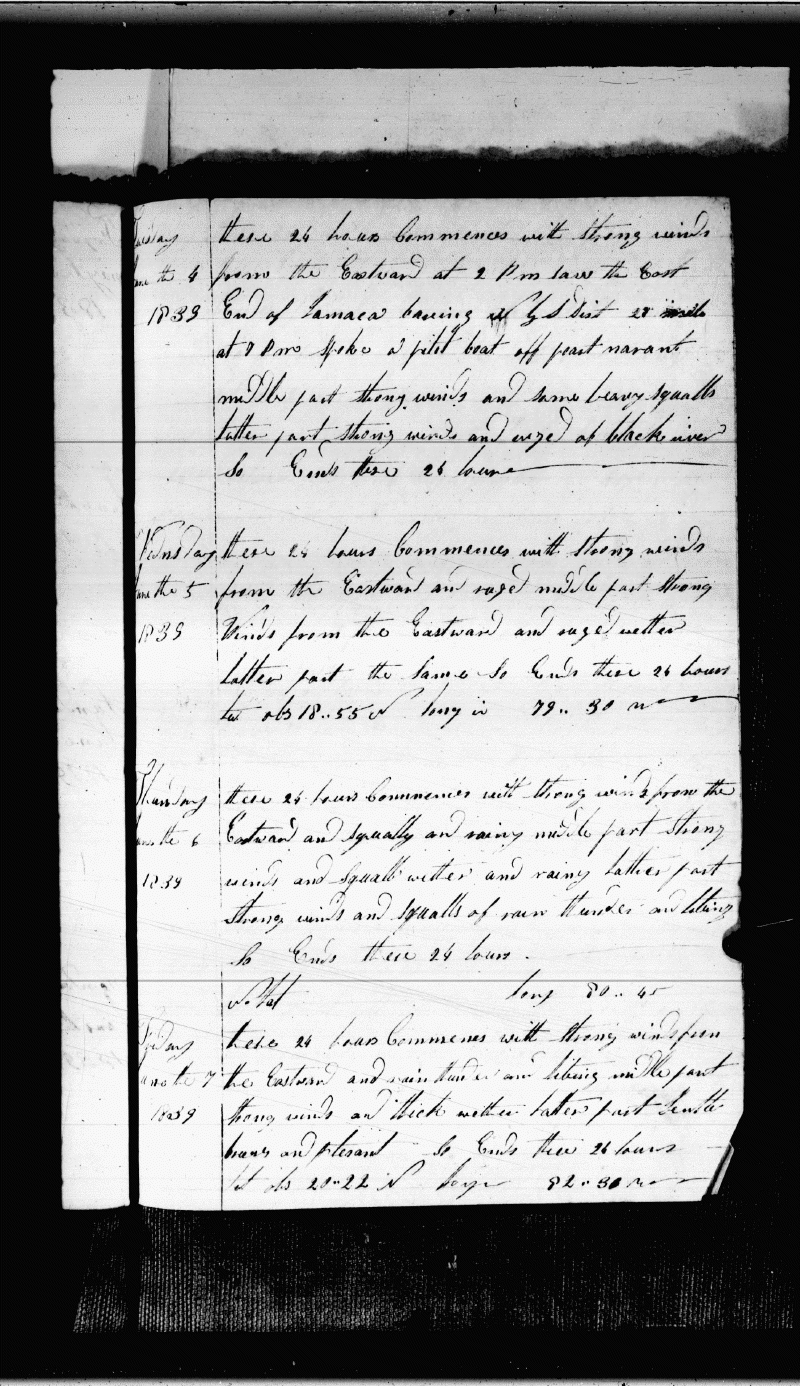 Tuesday these 24 hours Commences with Strong winds
June the 4 from the Eastward at 2 Pm saw the East
1839 End of Jamaca baring N Dist 28 mile
at 7 Pm spoke a pilot boat off peart narant
middle part strong winds and some heavy squalls
latter part strong winds and of black river
So Ends these 24 hours
Wednsday these 24 hours Commences with strong winds
June the 5 from the Eastward and ruged middle part strong
1839 Winds from the Eastward and ruged wetter
latter part the same So Ends these 24 hours
lat obs 18..55 N long in 79.. 30 W
Thursday these 24 hours Commences with strong winds from the
June the 6 Eastward and squally and rainy middle part strong
1839 winds and squall wetter and rainy latter part
strong winds and squalls of rain thunder and liting
So Ends these 24 hours.
No lat long 80.. 45
Friday these 24 hours Commences with strong winds from
June the 7 the Eastward and rain thunder and liting middle part
1839 strong winds and thick wetter latter part
and plesant So Ends these 24 hours
lat obs 20..22 N long in 82.. 30 W